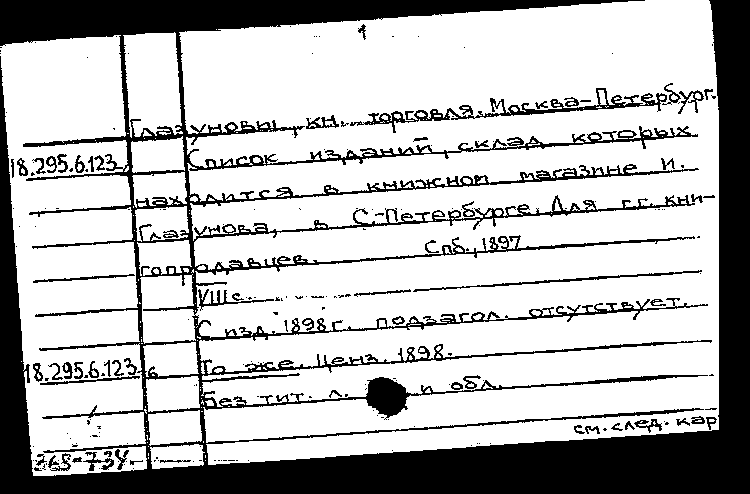 1
Глазуновы, кн. торговля. Москва-Петербург.
18.295.6.123 Список изданий, склад которых
находится в книжном магазине И.
Глазунова, в С.-Петербурге. Для г.г. кни-
гопродавцев. Спб., 1897
VIII с.
С изд. 1898 г. подзагол. отсутствует.
18.295.6.123 б То же. Ценз. 1898.
Без тит. л. и обл.
см. след. кар
368-734.